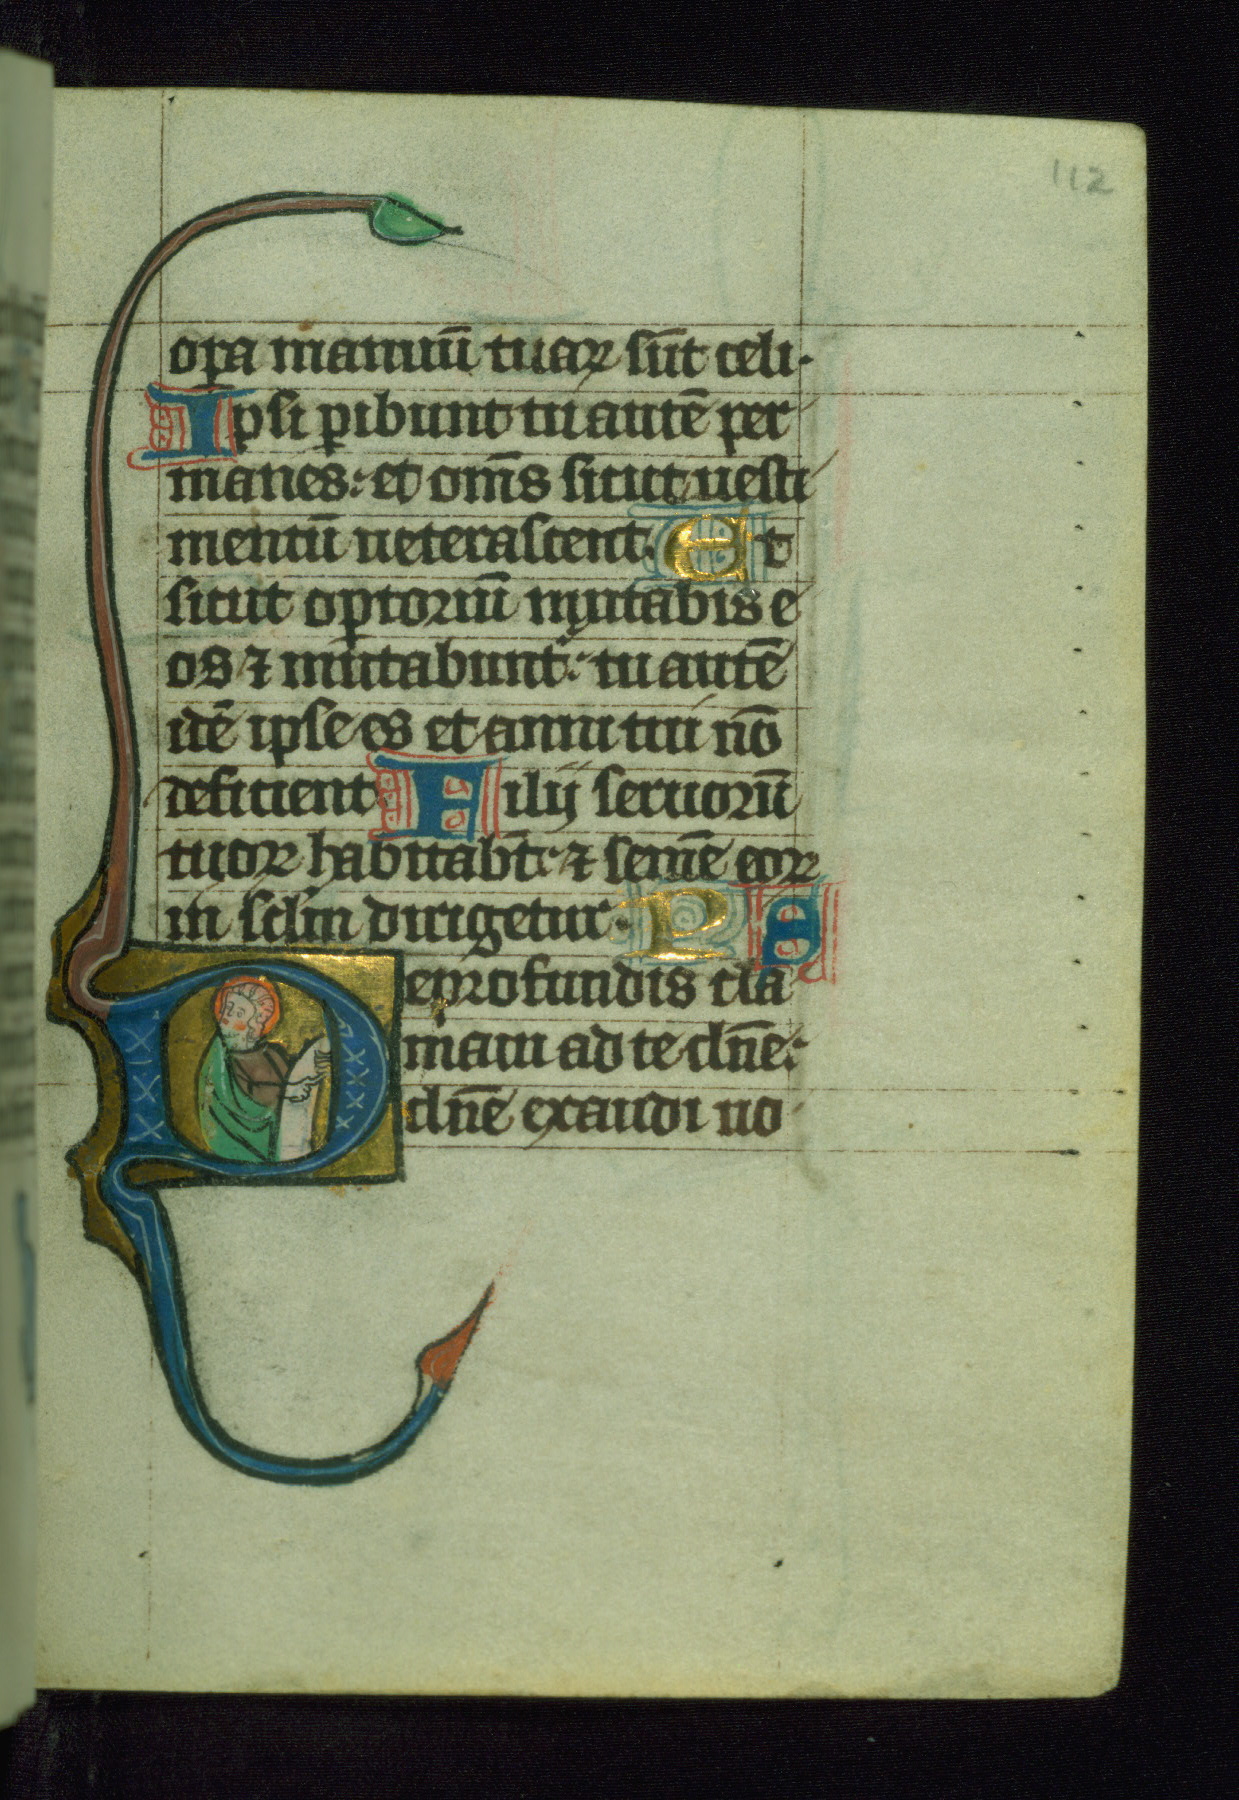 112
oꝑa manuū tuaꝝ sūt celi·
Ipsi ꝑibunt tu autē per
manes: et om̄s sicut uesti
mentū ueterascent. Et
sicut opꝑtoriū mutabis e
os ⁊ mutabunt᷑: tu autē
idē ipse es et anni tui nō
deficient Filij seruorū
tuoꝝ habitab̄t: ⁊ semē eoꝝ
in sc̄lm dirigetur· P A
Deprofundis cla
maui ad te dn̄e:
dn̄e exaudi uo